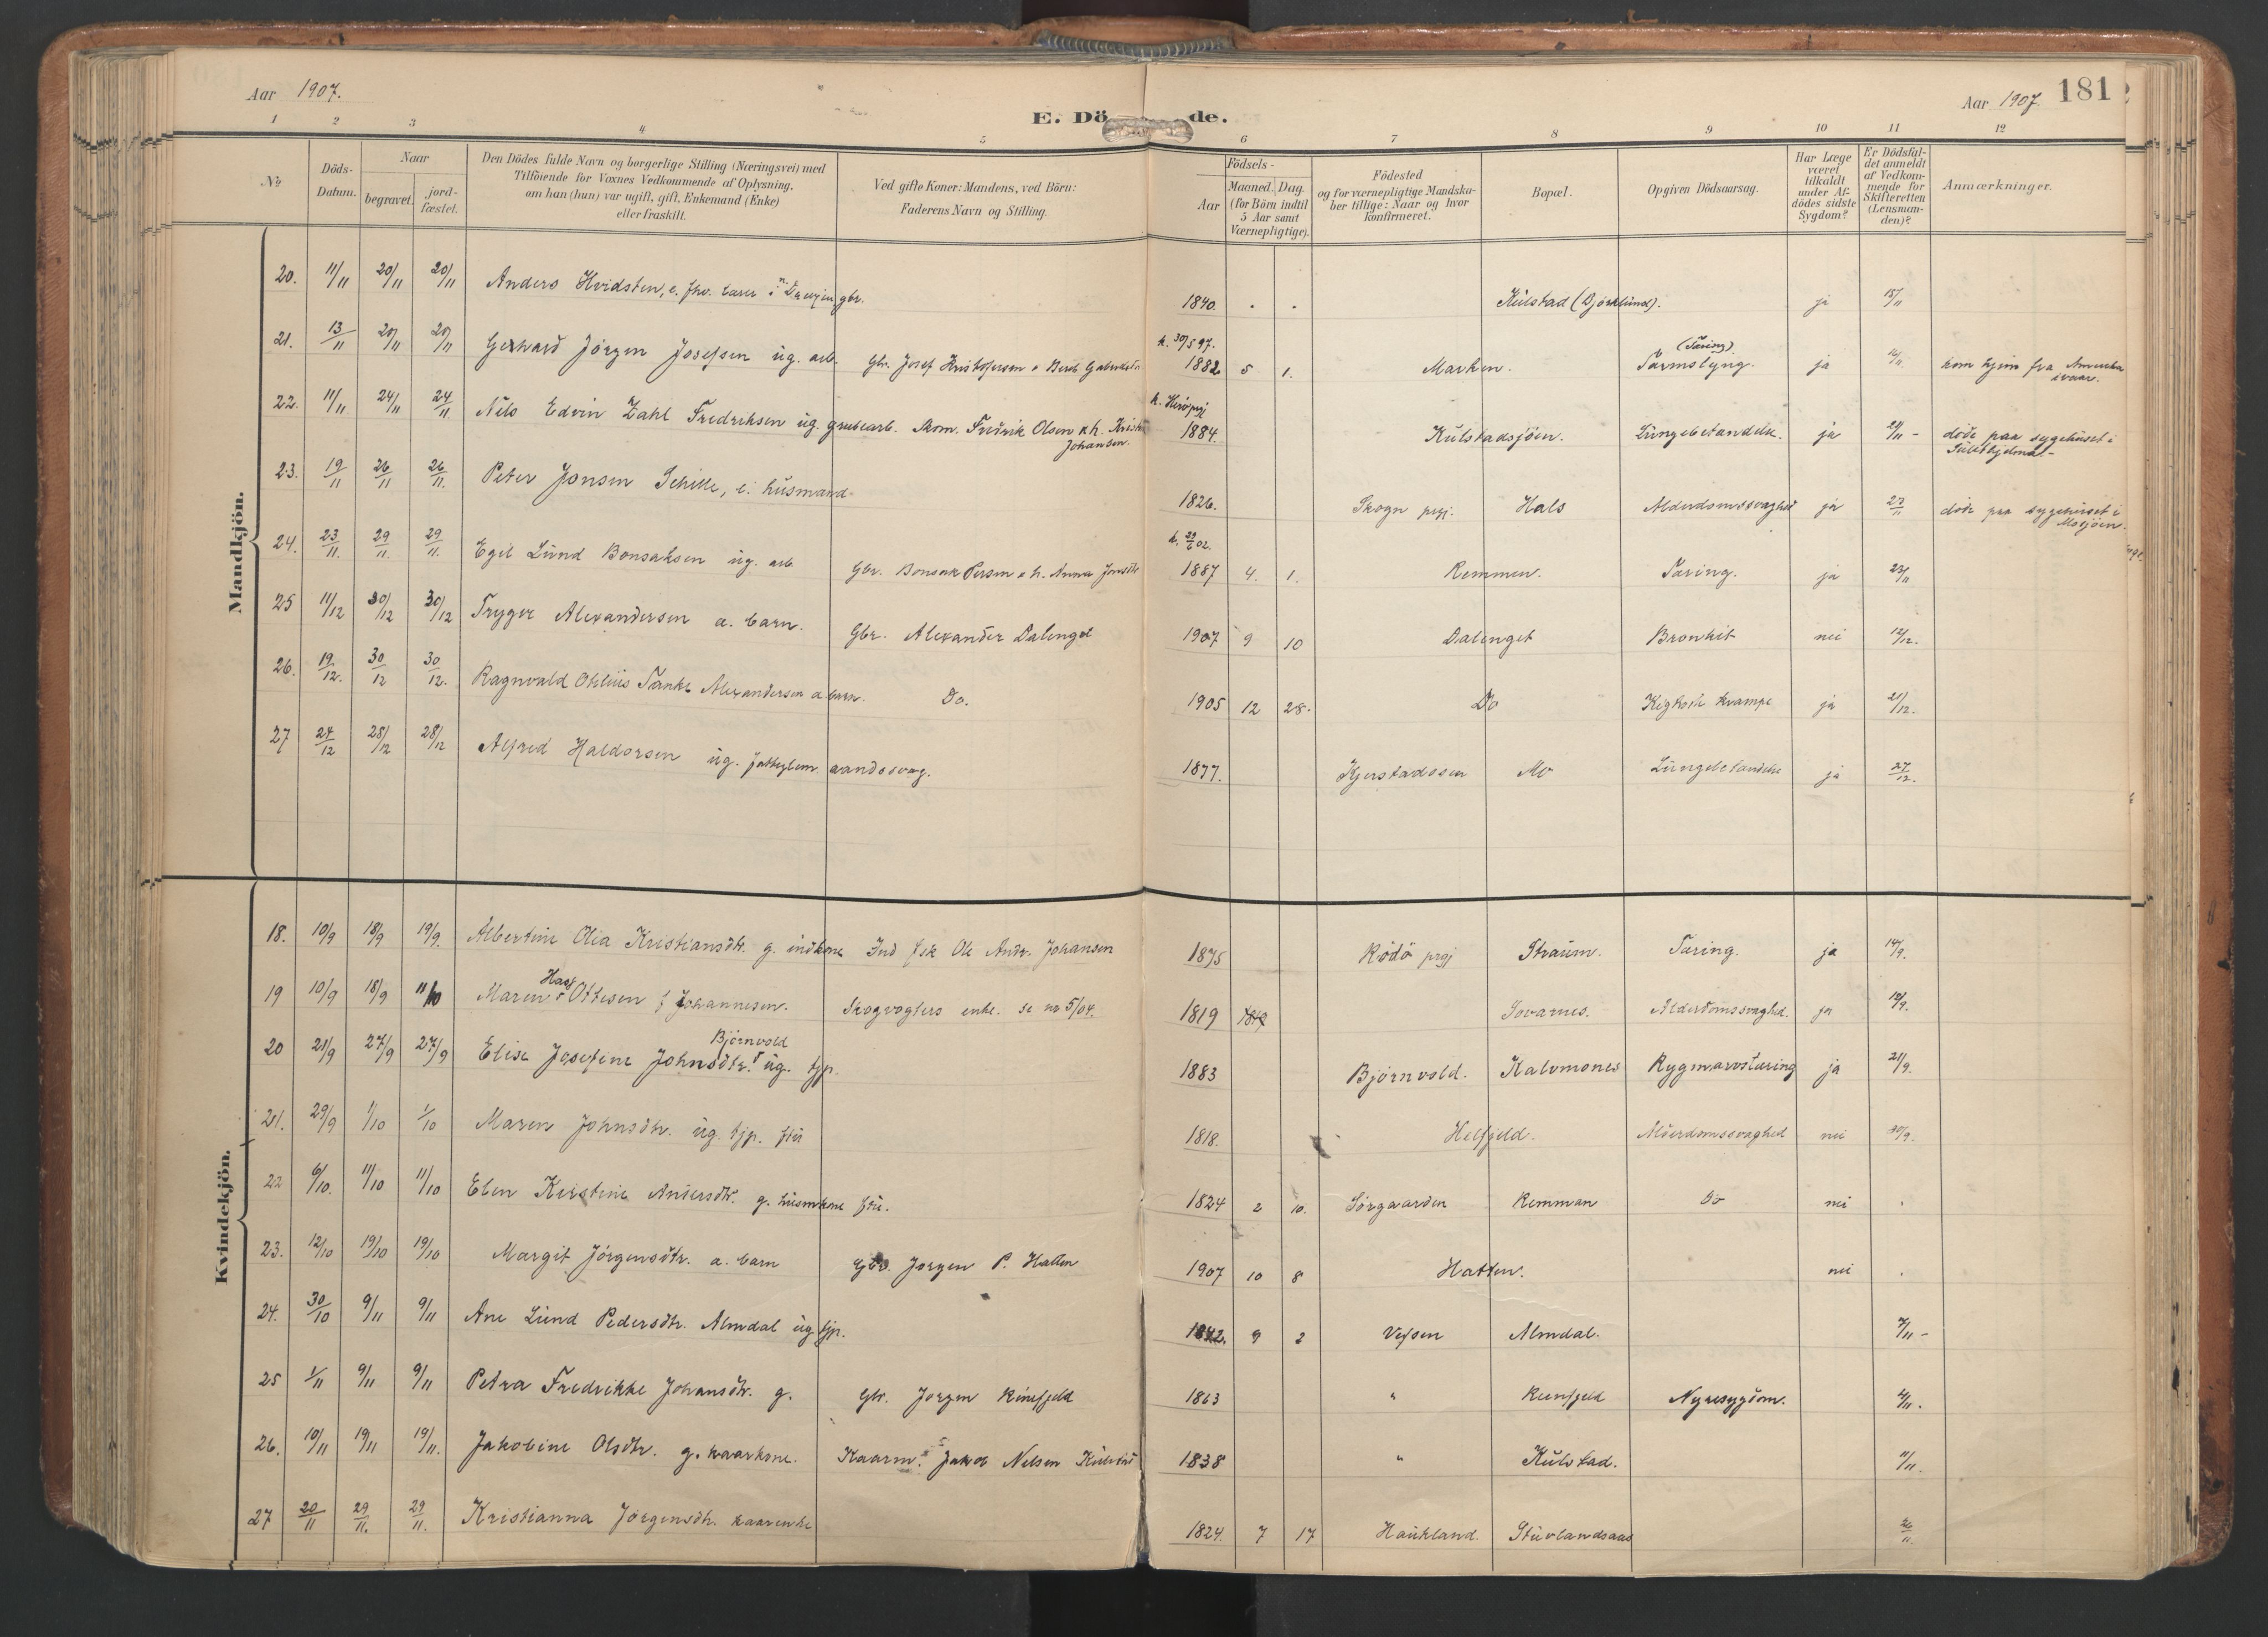 Aar 1907.
E. Dö de.
Aar 1907. 181
1 2 3 4 5 6 7 8 9 10 11 12
No
Döds-Datum.
Naar
begravet.
jord-fæstet.
Den Dödes fulde Navn og borgerlige Stilling (Næringsvei) med
Tilföiende for Voxnes Vedkommende af Oplysning,
om han (hun) var ugift, gift, Enkemand (Enke)
eller fraskilt.
Ved gifte Koner: Mandens, ved Börn:
Faderens Navn og Stilling.
Födsels-
Aar
Maaned. Dag.
(for Börn indtil
5 Aar samt
Værnepligtige).
Födested
og for værnepligtige Mandska-
ber tillige: Naar og hvor
konfirmeret.
Bopæl.
Opgiven Dödsaarsag.
Har Læge
været
tilkaldt
under Af-
dödes sidste
Sygdom?
Er Dödsfal-
det anmeldt
af Vedkom-
mende for
Skifteretten
(Lensman-
den)?
Anmærkninger.
Mandkjön.
20. 11/11 20/11 20/11 Anders Hvidsten, e. fhv. gbr. 1840. Kulstad (Björklund). ja 15/11
21. 13/11 20/11 20/11 Gerhard Jörgen Josefsen ug. arb. Gbr. Josef Kristofersen k. 30/5 97. 1882 5 1. Marken. (Tæring) Tarmslyng. ja kom hjem fra Amerika
22. 11/11 24/11 24/11 Nils Edvin Zahl Fredriksen ug. grubearb. Skom. Fredrik Olsen o h. Johansen. 1884. Kulstadsjöen. Lungebetændelse. ja döde paa sygehuset i Sulithjelma.
23. 19/11 26/11 26/11. Peter Jonsen Schille, e. husmand 1826. Skogn prgj. Hals Alderdomssvaghed ja döde paa sygehuset i Mosjöen.
24. 23/11. 29/11. 29/11. Egil Lund Bonsaksen ug. arb Gbr. Bonsak Persen o h. Anna k. 02. 1887 4. 1. Remmen. Tæring. ja 23/11
25 11/12 30/12 30/12 Trygve Alexandersen a. barn. Gbr. Alexander Dalenget 1907 9 10 Dalenget Bronkit nei 12/12.
26. 19/12. 30/12 30/12. Ragnvald Tanke Alexandersen a barn. Do. 1905 12 28. Do Kighoste krampe ja 21/12.
27 24/12 28/12 28/12 Alfred Haldorsen ug. aandssvag. 1877. Kjerstadosen Mo Lungebetændelse ja 27/12.
Kvindekjön.
18. 10/9 18/9 19/9. Albertine Olia Kristiansdtr. g. indkone Ind fsk Ole Andr. Johansen 1875 Rödö prgj Straum. Tæring. ja 14/9.
19 10/9 18/9 11/10 Maren Ottesen f Johannesen. Skogvogters enke. se no 5/04. 1819 1819 Sovarnes. Alderdomssvaghed. ja 12/9.
20 21/9 27/9 27/9 Elise Josefine Johnsdtr. Björnvold ug. tjp. 1883 Björnvold. Kalvmones Rygmarvstæring ja 21/9.
21. 29/9 1/10 1/10 Maren Johnsdtr. ug. tjp. 1818. Helfjeld. Alderdomssvaghed nei 30/9.
22 6/10. 11/10 11/10 Elen Kristine Andersdtr. g. husmkone 1824 2 10. Sörgaarden Remman Do nei .
23. 12/10 19/10 19/10 Margit Jörgensdtr. a. barn Gbr. Jörgen P. Hatten 1907 10 8 Hatten. nei .
24. 30/10 9/11 9/11 Ane Lund Pedersdtr. Almdal ug tjp. 1842. 9 2 Vefsen Almdal.
25 1/11 9/11 9/11 Petra Fredrikke Johansdtr. g. Gbr. Jörgen Reinfjeld 1863 " Reinfjeld Nyresygdom. 4/11.
26. 10/11 19/11 19/11. Jakobine Olsdtr. g. kaarkone. Kaarm. Jakob Nilsen Kulstad 1838 " Kulstad. 11/11.
27 20/11 29/11. 29/11. Kristianna Jörgensdtr. kaarenke 1824. 7 17 Haukland. Stuvlandsaas